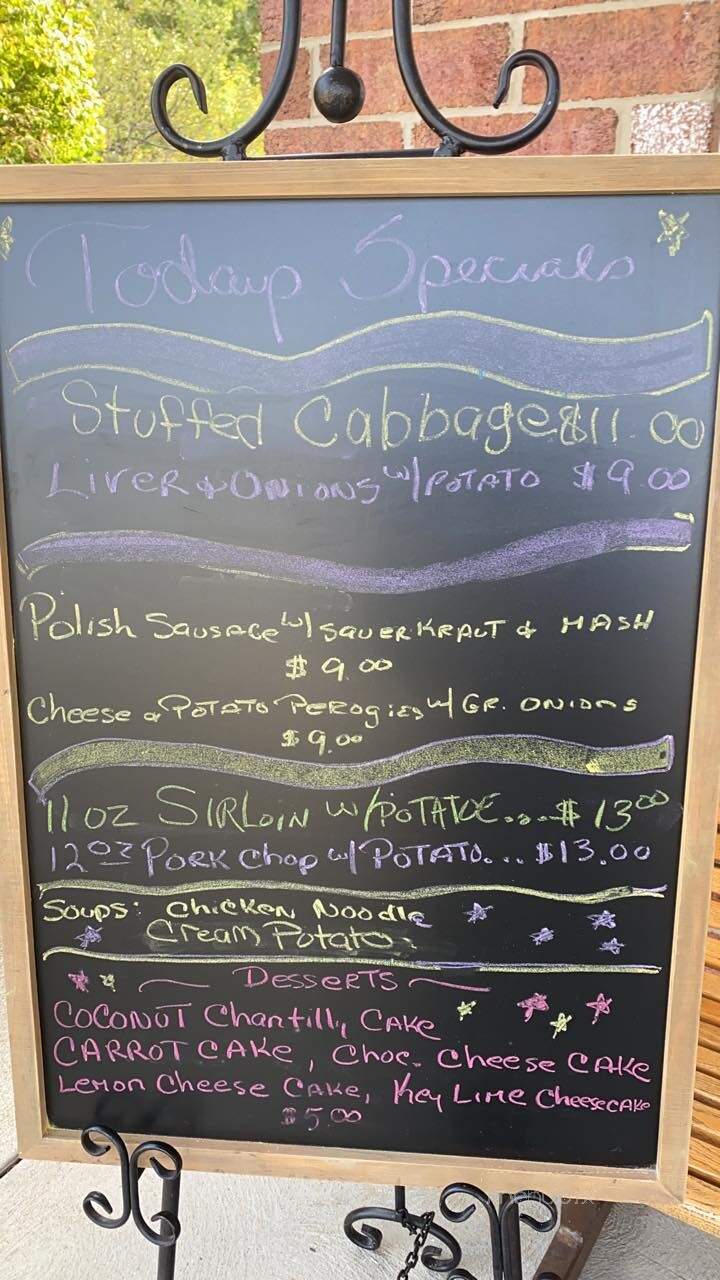 Today Specials
Stuffed Cabbage $11.00
Liver & Onions w/ Potato $9.00
Polish Sausage w/ Sauerkraut & Mash
$9.00
Cheese & Potato Perogies w/ Gr. Onions
$9.00
11 oz Sirloin w/ Potatoe....$13⁰⁰
12 oz Pork Chop w/ Potato... $13.00
Soups: Chicken Noodle
Cream Potato
Desserts
Coconut Chantilly Cake
Carrot Cake, Choc. Cheese Cake
Lemon Cheese Cake, Key Lime Cheesecake
$5.00